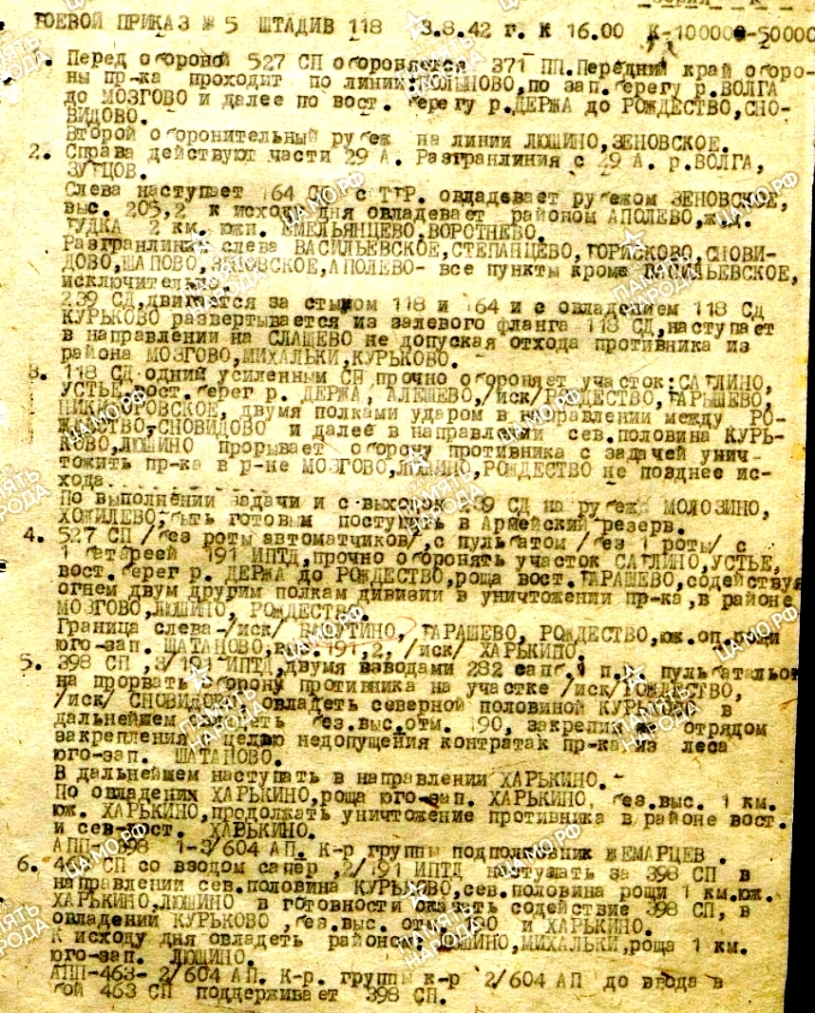 БОЕВОЙ ПРИКАЗ № 5 ШТАДИВ 118 3.8.42 г. К 16.00 К-100000-50000
1. Перед обороной 527 СП обороняется 371 ПП. Передний край оборо-
ны пр-ка проходит по линии: ГОЛЬПОВО, по зап. берегу р. ВОЛГА
до МОЗГОВО и далее по вост. берегу р. ДЕРЖА до РОЖДЕСТВО, СНО-
ВИДОВО.
Второй оборонительный рубеж на линии ЛЮШИНО, ЗЕНОВСКОЕ.
2. Справа действуют части 29 А. Разгранлиния с 29 А. р. ВОЛГА,
ЗУБЦОВ.
Слева наступает 164 СД с ТБР. овладевает рубежом ЗЕНОВСКОЕ,
выс. 205,2 к исходу дня овладевает районом АПОЛЕВО, ж.д.
БУДКА 2 км. южн. ЕМЕЛЬЯНЦЕВО, ВОРОТНЕВО.
Разгранлиния слева ВАСИЛЬЕВСКОЕ, СТЕПАНЦЕВО, БОРИСКОВО, СНОВИ-
ДОВО, ШАПОВО, ЗЕНОВСКОЕ, АПОЛЕВО- все пункты кроме ВАСИЛЬЕВСКОЕ,
исключительно.
239 СД, двигается за стыком 118 и 164 и с овладением 118 СД
КУРЬКОВО развертывается из залевого фланга 118 СД, наступает
в направлении на СЛАЩЕВО не допуская отхода противника из
района МОЗГОВО, МИХАЛЬКИ, КУРЬКОВО.
3. 118 СД одний усиленным СП прочно обороняет участок: САБЛИНО,
УСТЬЕ, вост. берег р. ДЕРЖА, АЛЕШЕВО, /иск/ РОЖДЕСТВО, БАРЫШЕВО,
НИКИФОРОВСКОЕ, двумя полками ударом в направлении между РО-
ЖДЕСТВО, СНОВИДОВО и далее в направлении сев. половина КУРЬ-
КОВО, ЛЮШИНО прорывает оборону противника с задачей унич-
тожить пр-ка в р-не МОЗГОВО, ЛЮШИНО, РОЖДЕСТВО не позднее ис-
хода
По выполнении задачи и с выходом 239 СД на рубеж МОЛОЗИНО,
ХОМИЛЕВО, быть готовым поступить в Армейский резерв.
4. 527 СП /без роты автоматчиков/, с пульбатом /без 1 роты/ с
1 батареей 191 ИПТД, прочно оборонять участок САБЛИНО, УСТЬЕ,
вост. берег р. ДЕРЖА до РОЖДЕСТВО, роща вост. БАРАШЕВО, содействуя
огнем двум другим полкам дивизии в уничтожении пр-ка, в районе
МОЗГОВО, ЛЮШИНО, РОЖДЕСТВО.
Граница слева-/иск/ БАРАШЕВО, РОЖДЕСТВО, юж. оп. рощи
юго-зап. ШАТАНОВО, выс. 191,2, /иск/ ХАРЬКИНО.
5. 398 СП, 3/191 ИПТД, двумя взводами 282 сапб. 1 п.
на прорвать оборону противника на участке /иск/ РОЖДЕСТВО,
/иск/ СНОВИДОВО, овладеть северной половиной КУРЬКОВО в
дальнейшем овладеть без. выс. отм. 190, закрепив же отрядом
закрепления с целью недопущения контратак пр-ка из леса
юго-зап. ШАТАНОВО.
В дальнейшем наступать в направлении ХАРЬКИНО.-
По овладении ХАРЬКИНО, роща юго-зап. ХАРЬКИНО, без. выс. 1 км.
юж. ХАРЬКИНО, продолжать уничтожение противника в районе вост.
и сев-вост. ХАРЬКИНО.
АПП- 398 1-3/604 АП. К-р группы подполковник ЖЕМАРЦЕВ.
6. 463 СП со взводом сапер, 2/191 ИПТД наступать за 398 СП в
направлении сев. половина КУРЬКОВО, сев. половина рощи 1 км. юж.
ХАРЬКИНО, ЛЮШИНО в готовности оказать содействие 398 СП, в
овладений КУРЬКОВО, без. выс. отм. 190 и ХАРЬКИНО.
К исходу дня овладеть районом: ЛЮШИНО, МИХАЛЬКИ, роща 1 км.
юго-зап. ЛЮШИНО.
АПП-463- 2/604 АП. К-р. группы к-р 2/604 АП до ввода в
бой 463 СП поддерживает 398 СП.